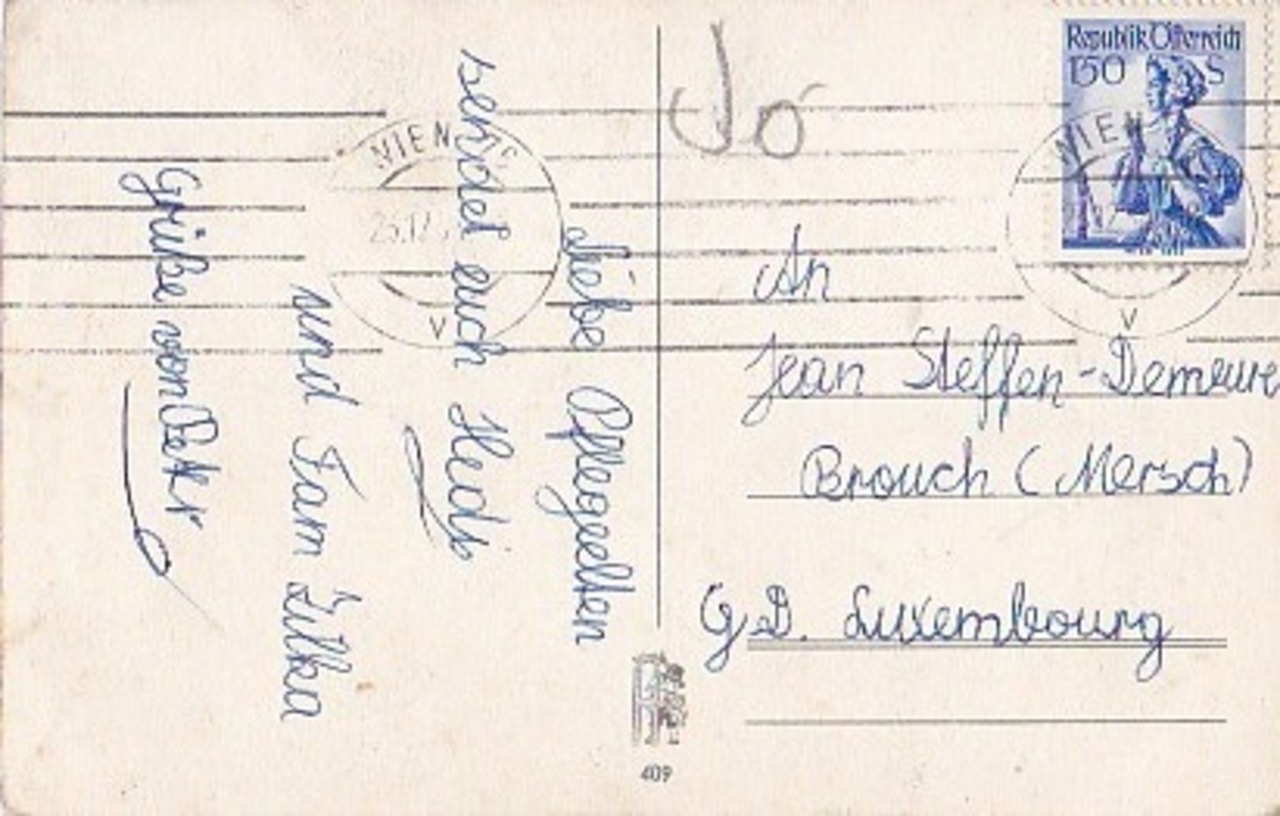 Liebe Pflegeelten
sendet euch Hedi
und Fam Zilka
Grüße von Peter
Jó
Republik Österreich
1'50 S
WIEN
V
WIEN
25.12.
V
An
Jean Steffen-Demeure
Brouch (Mersch)
G.D. Luxembourg
409